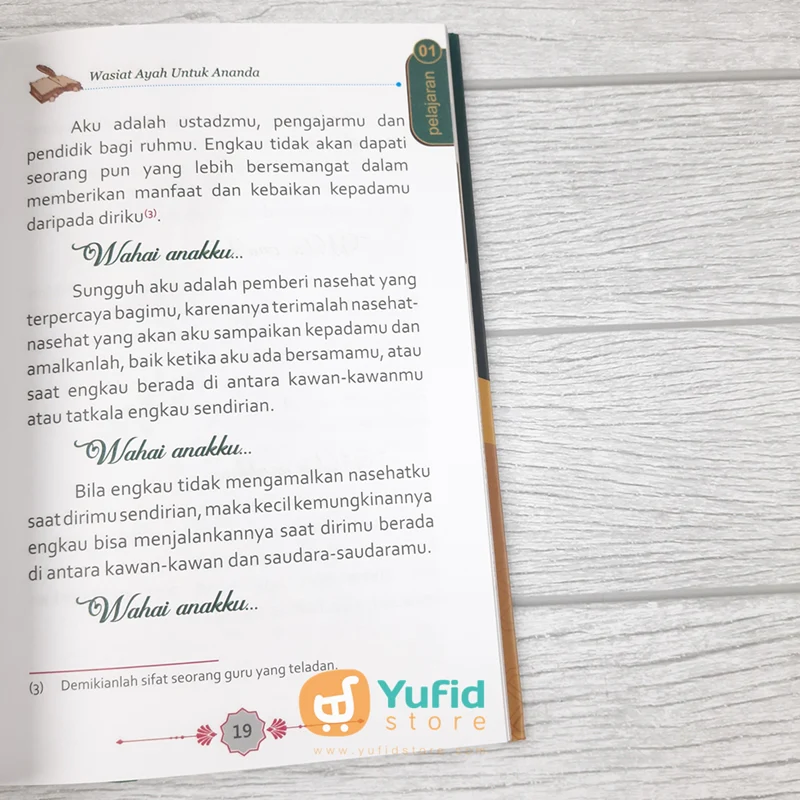 Wasiat Ayah Untuk Ananda
01
pelajaran
Aku adalah ustadzmu, pengajarmu dan
pendidik bagi ruhmu. Engkau tidak akan dapati
seorang pun yang lebih bersemangat dalam
memberikan manfaat dan kebaikan kepadamu
daripada diriku(3).
Wahai anakku...
Sungguh aku adalah pemberi nasehat yang
terpercaya bagimu, karenanya terimalah nasehat-
nasehat yang akan aku sampaikan kepadamu dan
amalkanlah, baik ketika aku ada bersamamu, atau
saat engkau berada di antara kawan-kawanmu
atau tatkala engkau sendirian.
Wahai anakku...
Bila engkau tidak mengamalkan nasehatku
saat dirimu sendirian, maka kecil kemungkinannya
engkau bisa menjalankannya saat dirimu berada
di antara kawan-kawan dan saudara-saudaramu.
Wahai anakku...
(3) Demikianlah sifat seorang guru yang teladan.
19
Yufid
store
www.yufidstore.com